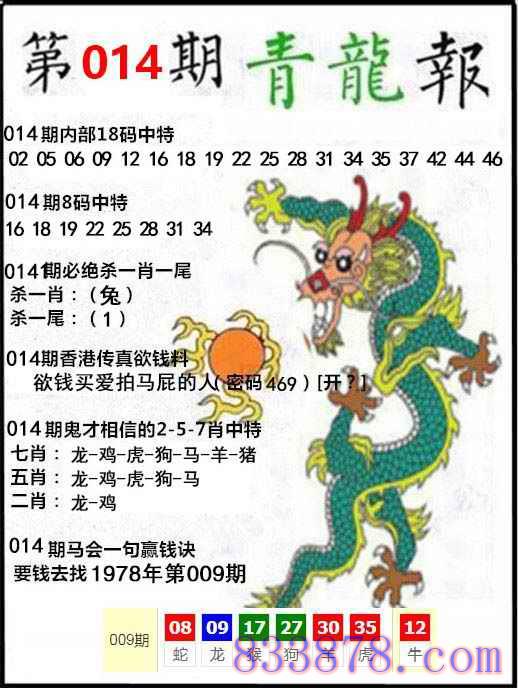 第014期青龍報
014期内部18码中特
02 05 06 09 12 16 18 19 22 25 28 31 34 35 37 42 44 46
014期8码中特
16 18 19 22 25 28 31 34
014期必绝杀一肖一尾
杀一肖：（兔）
杀一尾：（1）
014期香港传真欲钱料
欲钱买爱拍马屁的人（密码469）[开？]
014期鬼才相信的2-5-7肖中特
七肖：龙-鸡-虎-狗-马-羊-猪
五肖：龙-鸡-虎-狗-马
二肖：龙-鸡
014期马会一句赢钱诀
要钱去找1978年第009期
009期 08 09 17 27 30 35 12
蛇 龙 猴 狗 羊 虎 牛
833878.com